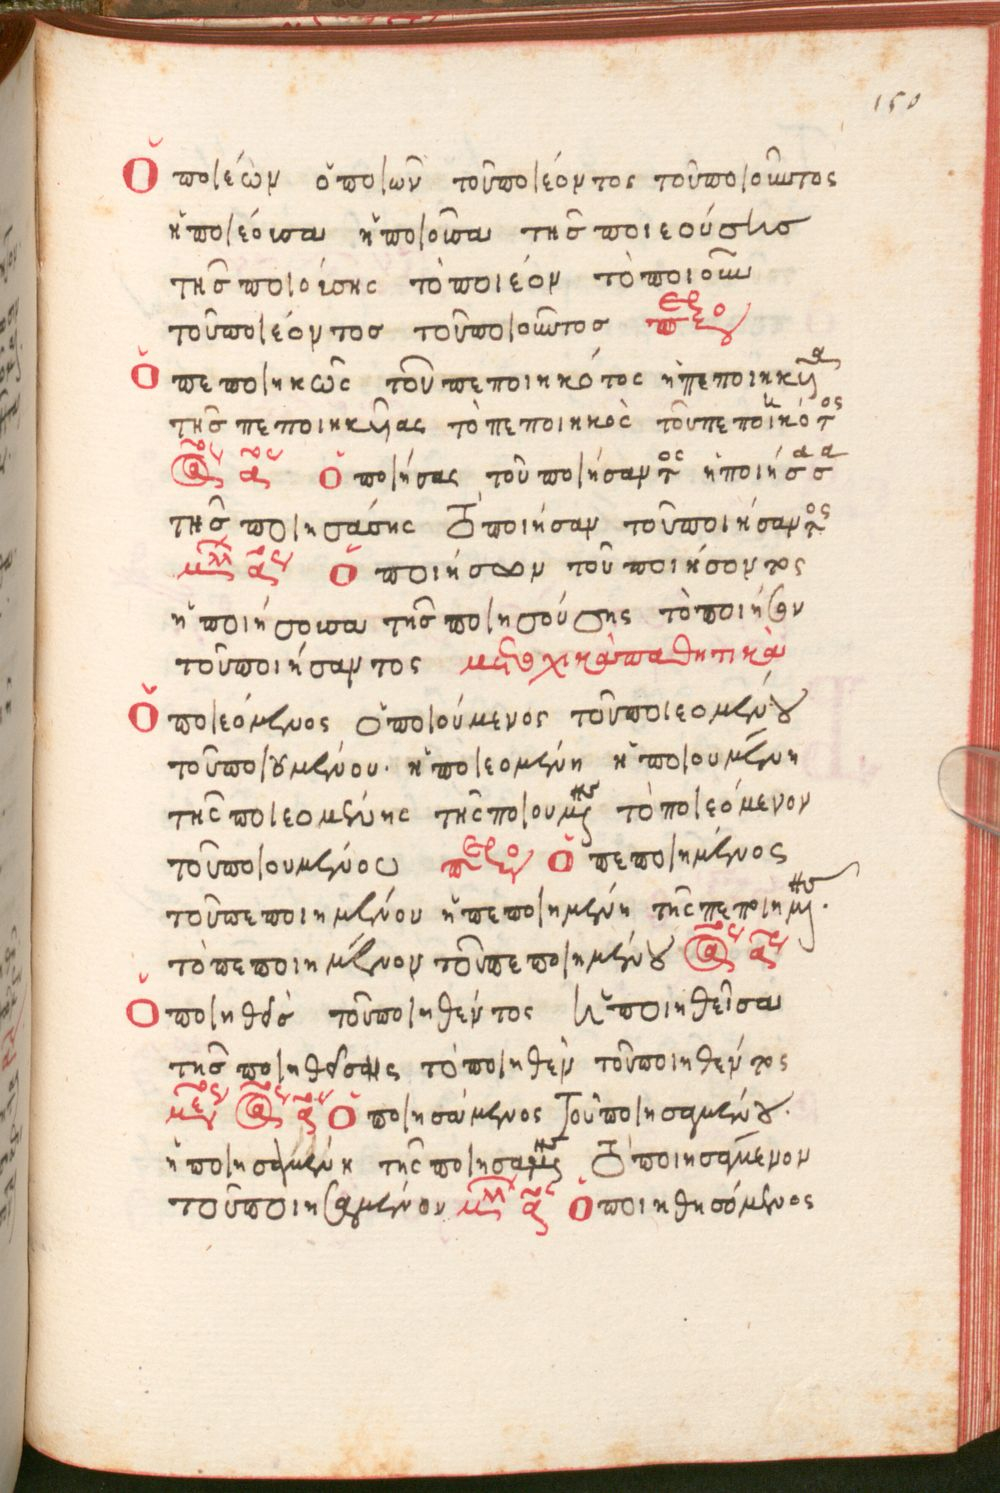 150
Ὁ ποιέων ὁ ποιῶν τοῦ ποιέοντος τοῦ ποιοῦντος
ἡ ποιέουσα ἡ ποιοῦσα τῆς ποιεούσης
τῆς ποιούσης τὸ ποιέον τὸ ποιοῦν
τοῦ ποιέοντος τοῦ ποιοῦντος
Ὁ πεποιηκὼς τοῦ πεποιηκότος ἡ πεποιηκυῖα
τῆς πεποιηκυίας τὸ πεποιηκὸς τοῦ πεποιηκότος
Ὁ ποιήσας τοῦ ποιήσαντος ἡ ποιήσασα
τῆς ποιησάσης Τὸ ποιήσαν τοῦ ποιήσαντος
Ὁ ποιήσων τοῦ ποιήσοντος
ἡ ποιήσουσα τῆς ποιησούσης τὸ ποιήσον
τοῦ ποιήσαντος μετοχικὰ παθητικὰ
Ὁ ποιεόμενος Ὁ ποιούμενος τοῦ ποιεομένου
τοῦ ποιουμένου· ἡ ποιεομένη ἡ ποιουμένη
τῆς ποιεομένης τῆς ποιουμένης τὸ ποιεόμενον
τοῦ ποιουμένου Ὁ πεποιημένος
τοῦ πεποιημένου ἡ πεποιημένη τῆς πεποιημένης.
τὸ πεποιημένον τοῦ πεποιημένου
Ὁ ποιηθεὶς τοῦ ποιηθέντος Ἡ ποιηθεῖσα
τῆς ποιηθείσης τὸ ποιηθὲν τοῦ ποιηθέντος
Ὁ ποιησάμενος Τοῦ ποιησαμένου.
ἡ ποιησαμένη τῆς ποιησαμένης Τὸ ποιησάμενον
τοῦ ποιησαμένου Ὁ ποιηθησόμενος